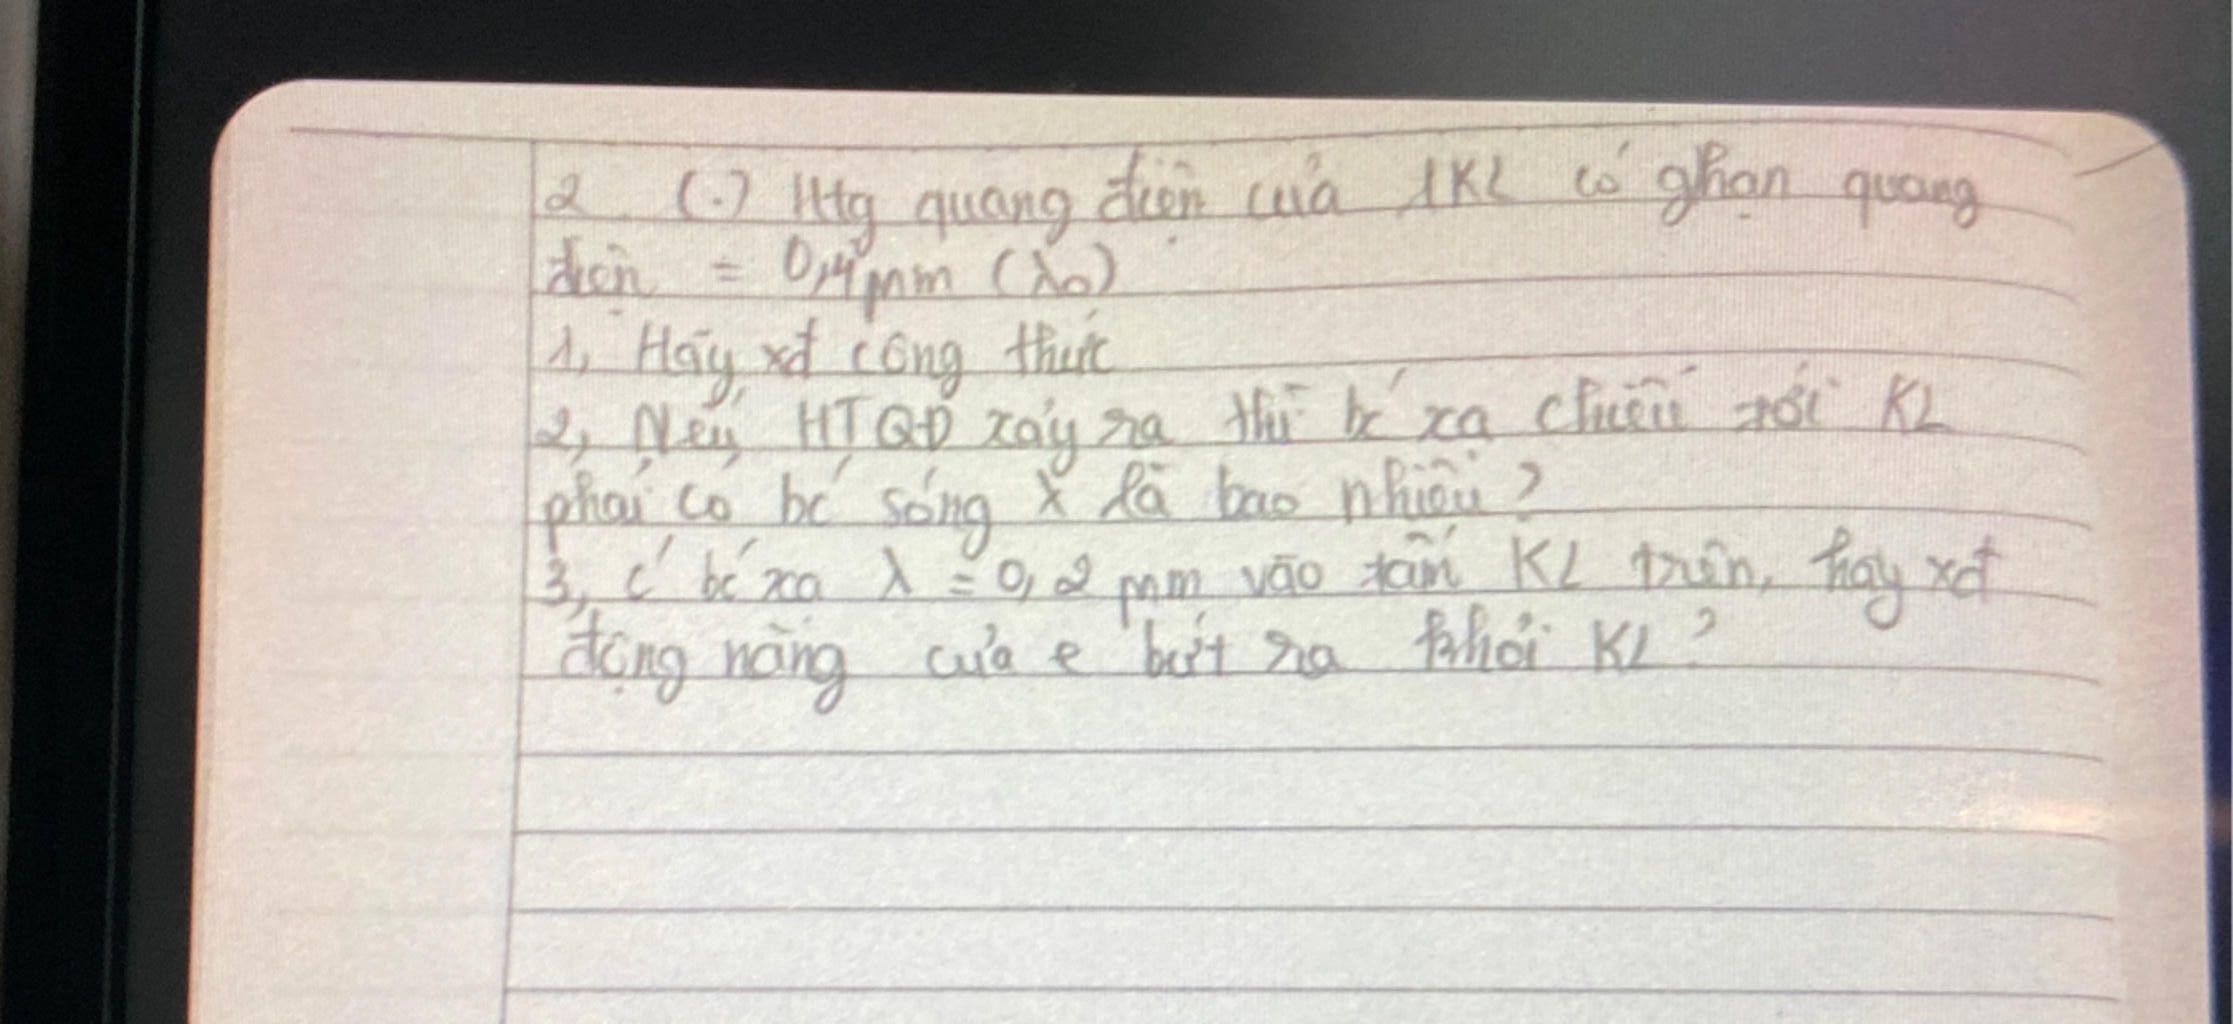 2 (.) Htg quang điện của 1KL có ghạn quang
điện = 0,4 μm (λ₀)
1, Hãy xđ công thức
2, Nếu HTQĐ xảy ra thì bć xạ chiếu tới KL
phải có bć sóng λ là bao nhiêu?
3, C´ bć xạ λ = 0,2 μm vào tấm KL trên, hãy xđ
động năng của e bứt ra khỏi KL?